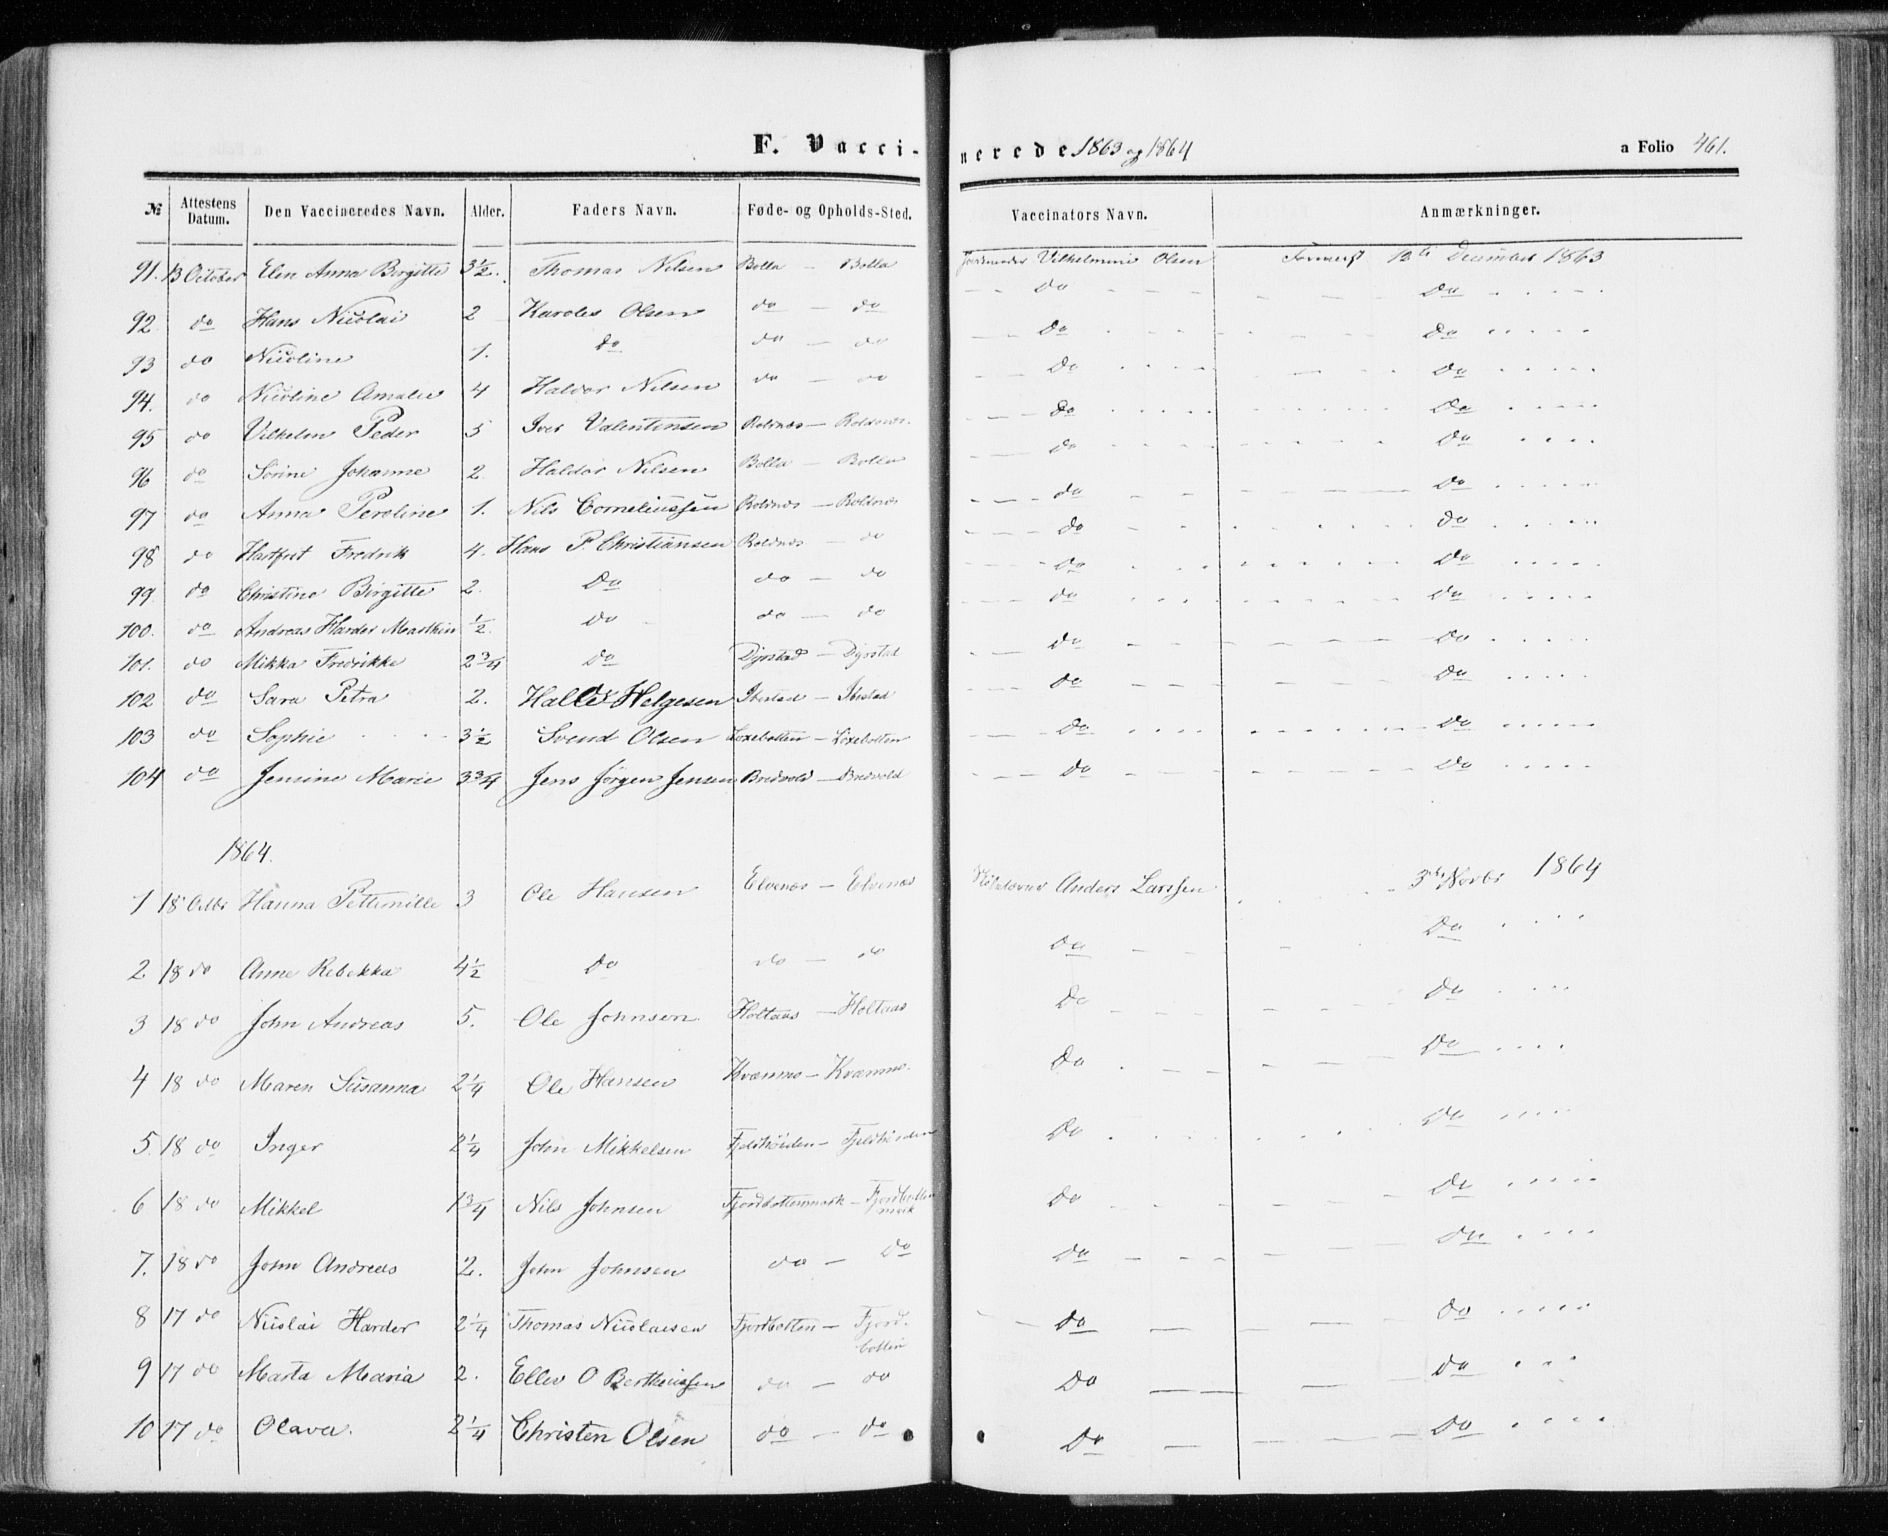 F. Vaccinerede 1863 og 1864 a Folio 461.
№ Attestens Datum. Den Vaccineredes Navn. Alder. Faders Navn. Føde- og Opholds-Sted. Vaccinators Navn. Anmærkninger.
91. 13 October Elen Anna Birgitte 3½. Thomas Nilsen Bolla — Bolla Jordmoder Vilhelmine Olsen December 1863
92 do Hans Nicolai 2 Karoles Olsen do — do Do Do
93 do Nicoline 1. Do do — do Do Do
94. do Nicoline Amalie 4 Haldor Nilsen do — do Do Do
95 do Vilhelm Peder 5 Iver Valentinsen Roldnæs — Roldnæs. Do Do
96 do Sørine Johanne 2. Haldor Nilsen Bolla — Bolla do Do
97 do Anna Peroline 1. Nils Corneliussen Roldnæs — Roldnæs do Do
98 do Hartfret Fredrik 4. Hans P. Christiansen Roldnæs — do Do Do
99 do Christine Birgitte 2. Do do — do do Do
100. do Andreas Harder Marthin ½. do do — do do Do
101. do Mikka Fredrikke 2¾ do Dyrstad — Dyrstad Do Do
102 do Sara Petra 2. Halder Helgesen Ibestad — Ibestad do Do
103 do Sophie 3½ Svend Olsen Løxebotten — Løxebotten Do Do
104 do Jensine Marie 3¾ Jens Jørgen Jensen Bredvold — Bredvold Do Do
1864.
1 18 Octbr Hanna Petternille 3 Ole Hansen Elvenæs — Elvenæs Anders Larssen 3die Novbr 1864
2 18 do Anne Rebekka 4½ Do do — do Do Do
3 18 do John Andreas 5. Ole Johnson Holtaas — Holtaas Do Do
4 18 do Maren Susanna 2¼ Ole Hansen Kvæmmo — Kvæmmo. Do Do
5. 18 do Inger 2¼ John Mikkelsen Fjeldhøiden — Fjeldhøiden Do Do
6 18 do Mikkel 1¾ Nils Johnsen Fjordbottenmark — Fjordbottenmark Do Do
7. 18 do John Andreas 2. John Johnsen do — do Do Do
8 17 do Nicolai Harder 2¼ Thomas Nicolaisen Fjordbotten — Fjordbotten Do Do
9 17 do Marta Maria 2. Ellev O Bertheussen do — do Do Do
10 17 do Olava. 2¼ Christen Olsen do — do Do Do